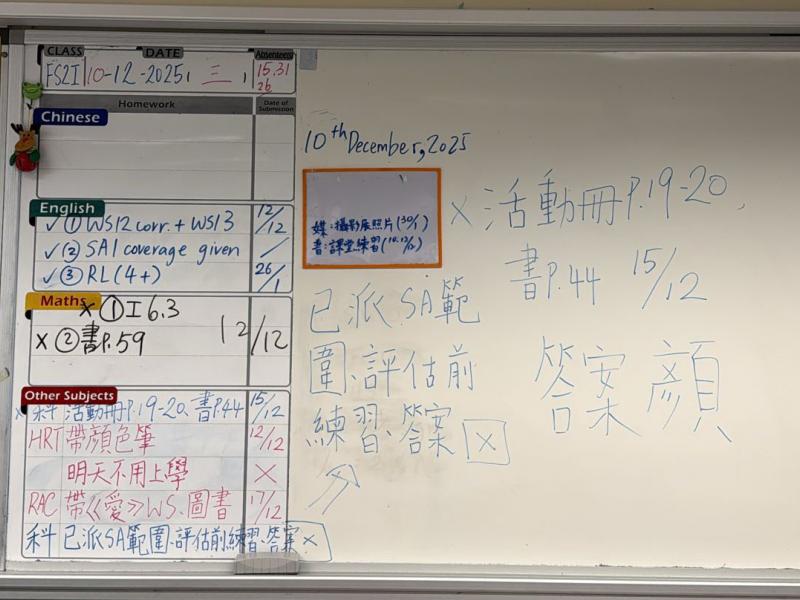 CLASS DATE Absentees
FS2I 10-12-2025, 三, 15.31
26
Homework Date of Submission
Chinese
English
✓ ① WS12 corr. + WS13 12/12
✓ ② SA1 coverage given ✓
✓ ③ RL (4+) 26/1
Maths
x ① I 6.3
x ② 書P.59 12/12
Other Subjects
x 科 活動冊P.19-20、書P.44 15/12
HRT 帶顏色筆 12/12
明天不用上學 X
RAC 帶《愛》WS、圖書 17/12
科 已派SA範圍、評估前練習、答案 x
10th December, 2025
x 活動冊P.19-20,
書P.44 15/12
已派SA範
圍、評估前
練習、答案 x
答案 顏